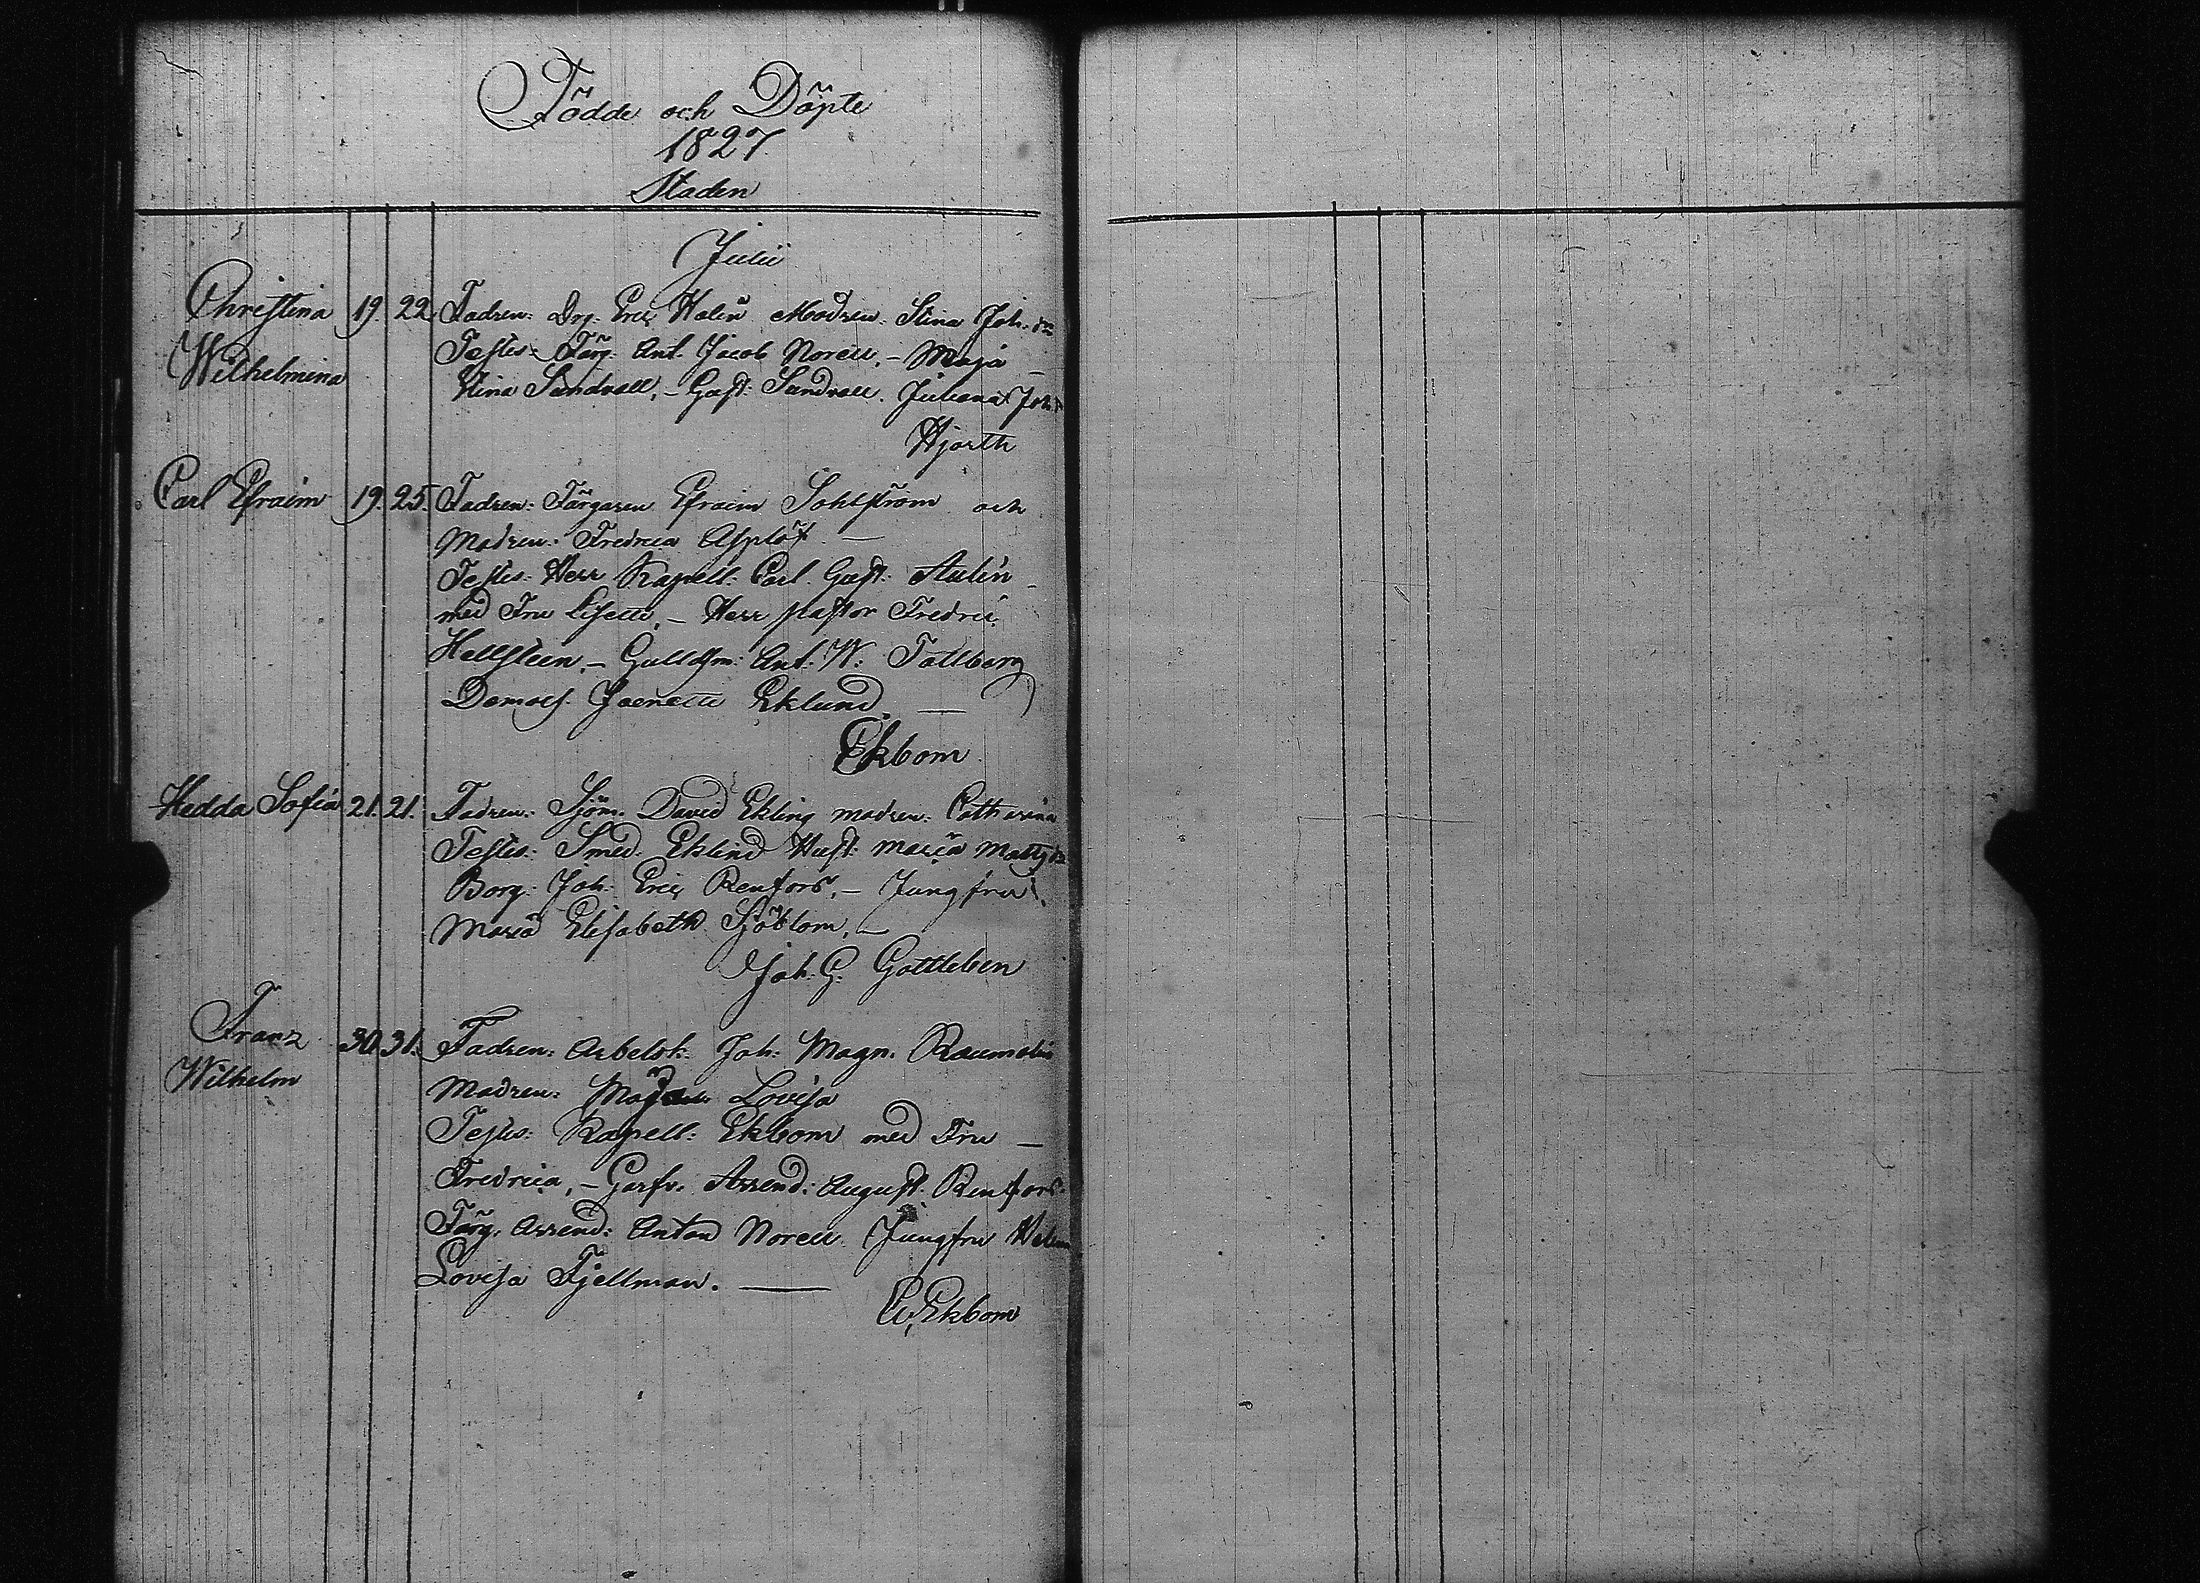 Födde och Döpte
1827
Staden
Julii
Christina 19. 22 Fadren: Drg. Eric Holm Modren: Stina Joh. dr
Wilhelmina Testes: Färg. Ant. Jacob Norell, - Maja
Stina Sundvall, - Gust. Sundvall. Juliana Joh. dr
Hjorth
Carl Efraim 19. 25. Fadren: Färgaren Efraim Sohlström och
Modren: Fredrica Asplöf -
Testes: Herr Kapell: Carl Gust: Aulin
med Fru Lisette, - Herr Pastor Fredric
Hellsteen, - Gulldsm: Ant. W: Tallberg
Demois. Jeanette Eklund. -
Ekbom
Hedda Sofia 21. 21. Fadren: Sjöm. David Ekling modren: Catharina
Testes: Smed. Eklind Hust: Maria Matts dr
Borg: Joh: Eric Renfors, - Jungfru
Maria Elisabeth Sjöblom, -
Joh. G. Gottleben
Franz 30 31. Fadren: Arbetsk. Joh: Magn. Raumolin
Wilhelm Modren: Maja Lovisa
Testes: Kapell: Ekbom med Fru -
Fredrica, - Garfv. Arrend: August Renfors
Färg. Arrend: Anton Norell Jungfru
Lovisa Fjellman. -
Ekbom